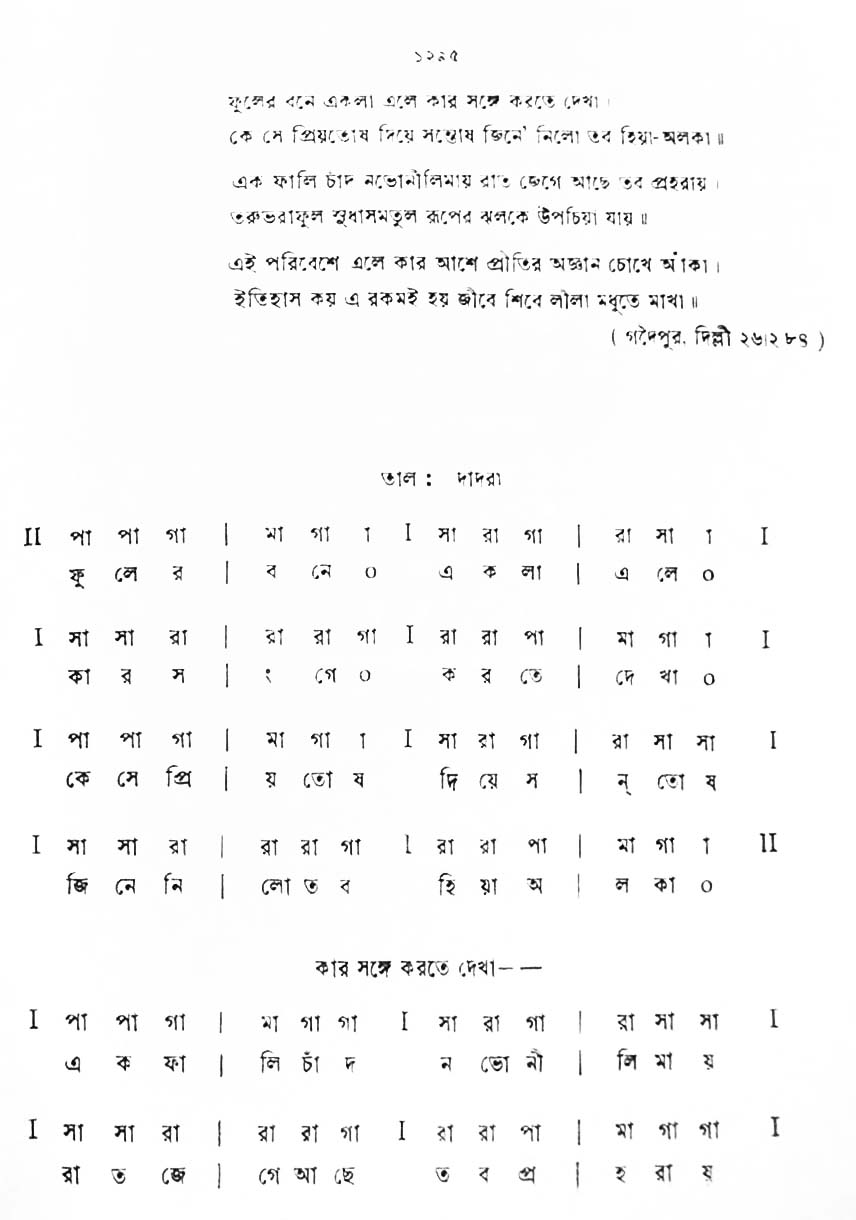 ১২৯৫
ফুলের বনে একলা এলে কার সঙ্গে করতে দেখা।
কে সে প্রিয়তোষ দিয়ে সন্তোষ জিনে' নিলো তব হিয়া-অলকা॥
এক ফালি চাঁদ নভোনীলিমায় রাত জেগে আছে তব প্রহরায়।
তরুভরাফুল সুধাসমতুল রূপের ঝলকে উপচিয়া যায়॥
এই পরিবেশে এলে কার আশে প্রীতির অজ্ঞান চোখে আঁকা।
ইতিহাস কয় এ রকমই হয় জীবে শিবে লীলা মধুতে মাখা॥
( গদৈপুর, দিল্লী ২৬।২৮৪ )
তাল : দাদরা
II পা পা গা | মা গা া I সা রা গা | রা সা া I
ফু লে র | ব নে ০ এ ক লা | এ লে ০
I সা সা রা | রা রা গা I রা রা পা | মা গা া I
কা র স | ং গে ০ ক র তে | দে খা ০
I পা পা গা | মা গা া I সা রা গা | রা সা সা I
কে সে প্রি | য় তো ষ দি য়ে স | ন্ তো ষ
I সা সা রা | রা রা গা l রা রা পা | মা গা া lI
জি নে নি | লো ত ব হি য়া অ | ল কা ০
কার সঙ্গে করতে দেখা– —
I পা পা গা | মা গা গা I সা রা গা | রা সা সা I
এ ক ফা | লি চাঁ দ ন ভো নী | লি মা য়
I সা সা রা | রা রা গা I রা রা পা | মা গা গা I
রা ত জে | গে আ ছে ত ব প্র | হ রা য়